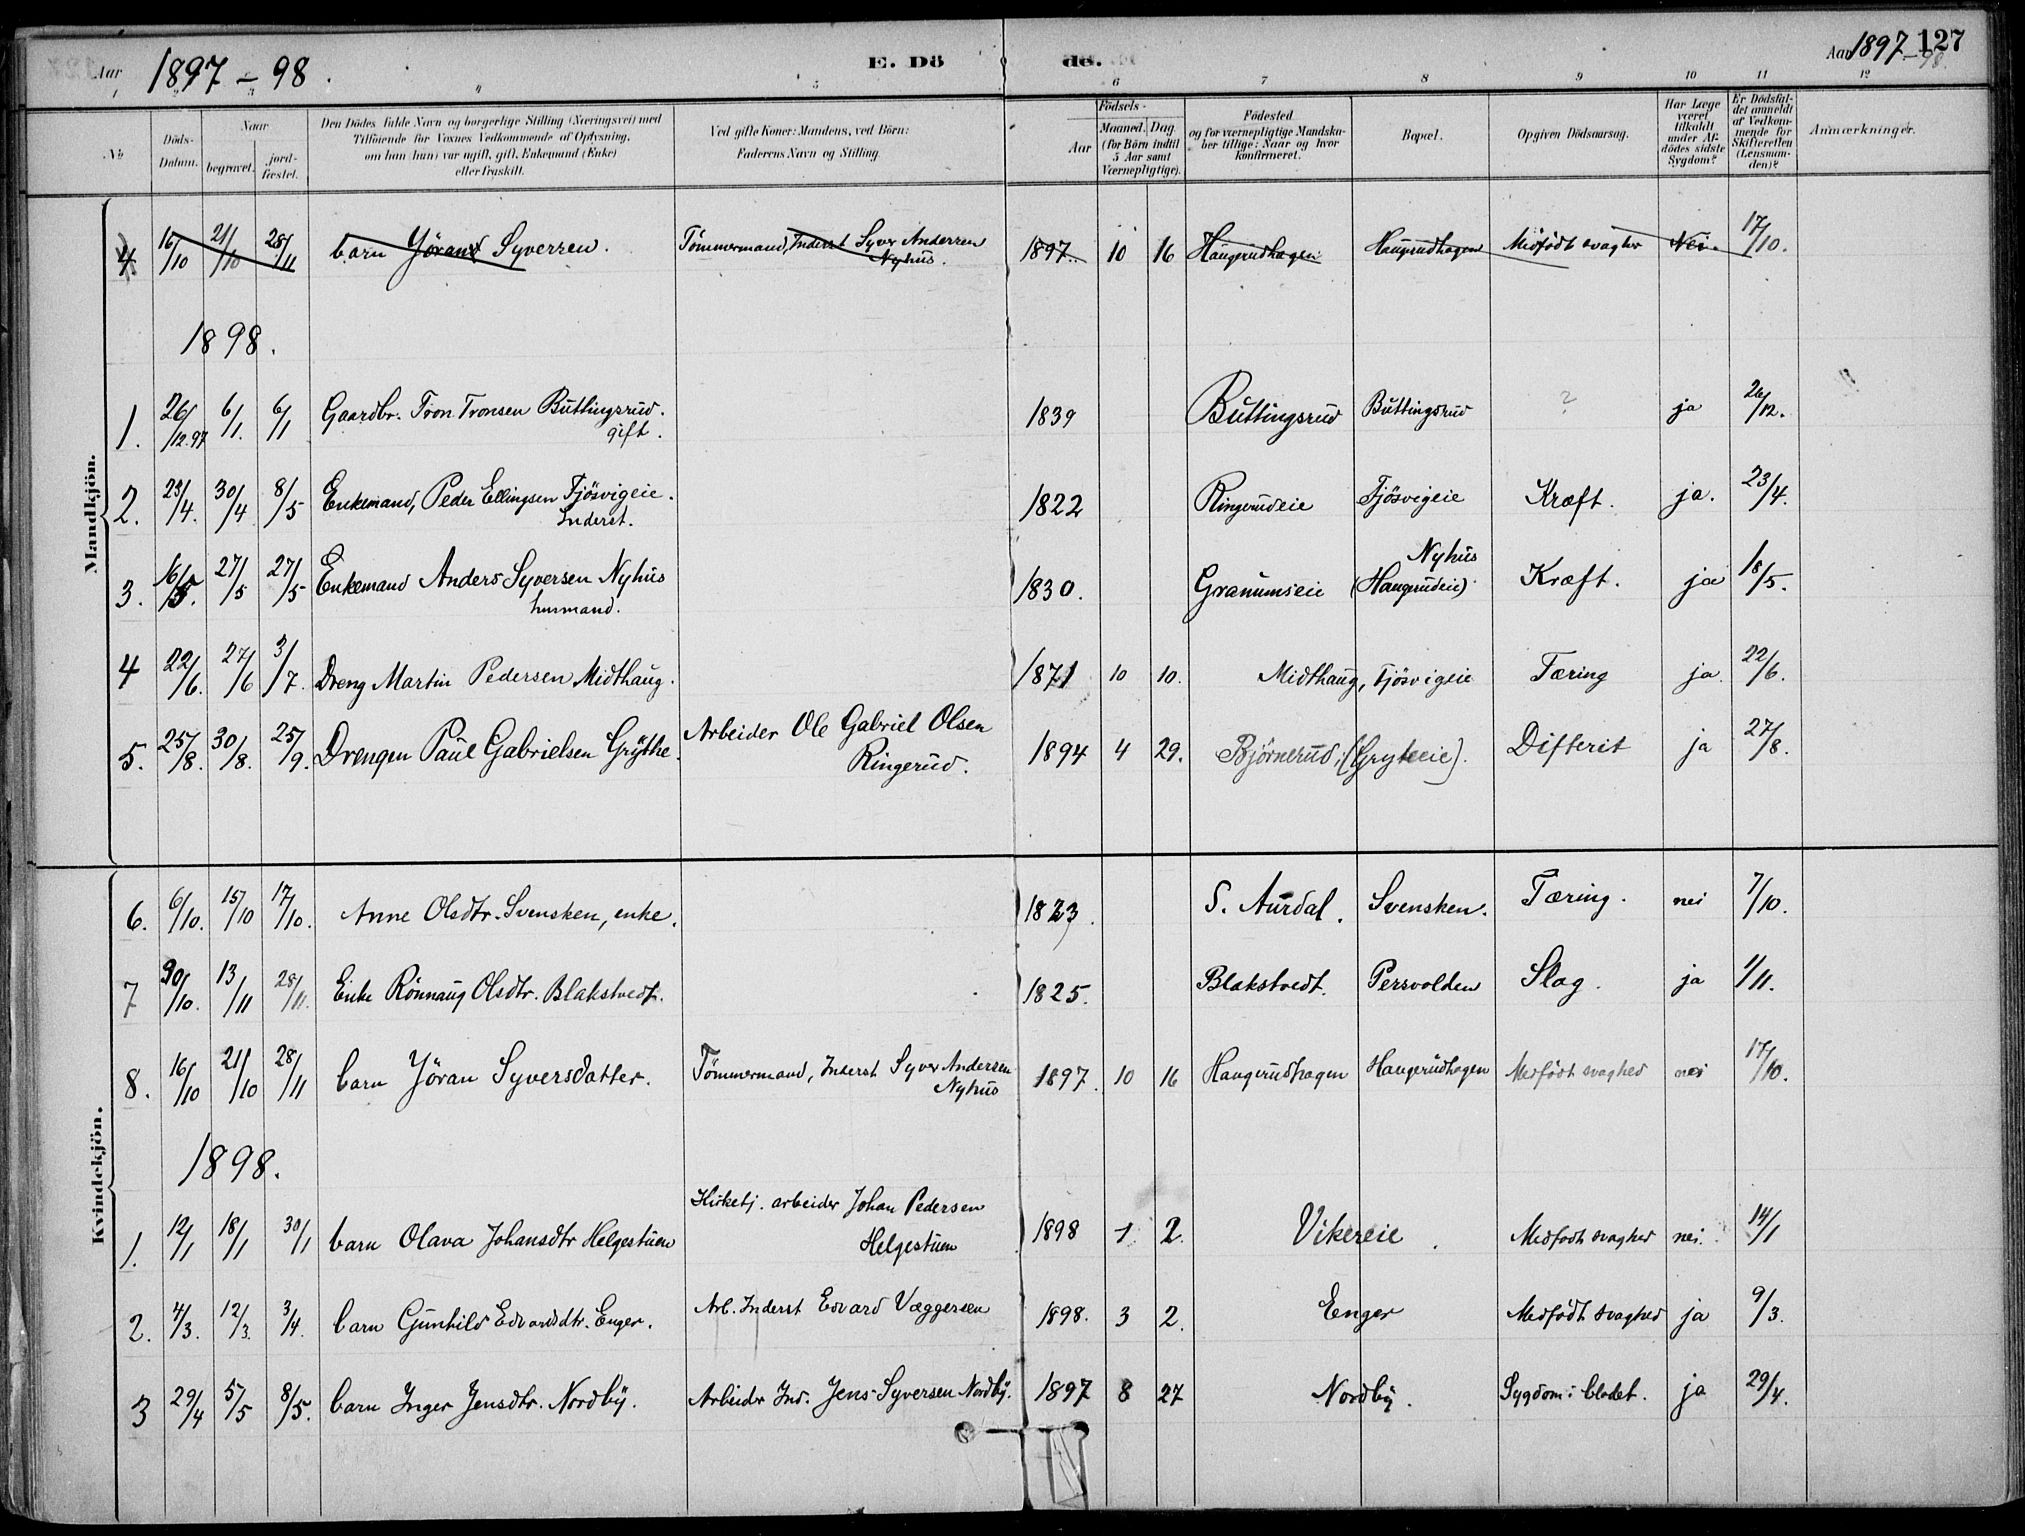 Aar 1897 - 98. E. Dö de. Aar 1897 - 98. 127
1 2 3 4 5 6 7 8 9 10 11 12
No Döds-Datum. Naar begravet. jord-fæstet. Den Dödes fulde Navn og borgerlige Stilling (Næringsvei) med Tilföiende for Voxnes Vedkommende af Oplysning, om han (hun) var ugift, gift, Enkemand (Enke) eller fraskilt. Ved gifte Koner: Mandens, ved Börn: Faderens Navn og Stilling. Födsels- Aar Maaned. Dag (for Börn indtil 5 Aar samt Værnepligtige). Födested og for værnepligtige Mandskaber tillige: Naar og hvor konfirmeret. Bopæl. Opgiven Dödsaarsag. Har Læge været tilkaldt under Afdödes sidste Sygdom? Er Dödsfaldet anmeldt af Vedkommende for Skifteretten (Lensmanden)? Anmærkninger.
Mandkjön.
4 16/10 21/10 28/11 barn Jöran Syversen. Tömmermand, Inderst Syver Andersen Nyhus. 1897. 10 16 Haugerudhagen Haugerudhagen Medfödt svaghed Nei. 17/10.
1898.
1. 26/12.97 6/1. 6/1 Gaardbr. Tron Tronsen Buttingsrud. 1839 Buttingsrud Buttingsrud ? ja 26/12.
gift.
2. 23/4. 30/4 8/5 Enkemand, Peder Ellingsen Tjösvigeie. 1822 Ringerudeie Tjösvigeie Kræft. ja. 23/4.
Inderst.
3. 16/5. 27/5 27/5 Enkemand Anders Syversen Nyhus 1830. Granumseie Nyhus (Haugerudeie) Kræft. ja 18/5.
husmand.
4 22/6. 27/6 3/7. Dreng Martin Pedersen Midthaug. 1871 10 10. Midthaug, Tjösvigeie Tæring ja. 22/6.
5. 25/8. 30/8. 25/9. Drengen Paul Gabrielsen Grythe. Arbeider Ole Gabriel Olsen Ringerud. 1894 4 29. Björnerud, (Gryteeie). Difterit ja 27/8.
Kvindekjön.
6. 6/10. 15/10 17/10. Anne Olsdtr. Svensken, enke. 1823. S. Aurdal. Svensken. Tæring. nei 7/10.
7 30/10. 13/11 28/11. Enke Rönnaug Olsdtr. Blakstvedt. 1825. Blakstvedt. Persvolden Slag. ja 1/11.
8. 16/10 21/10 28/11 barn Jöran Syversdatter. Tömmermand, Inderst Syver Andersen Nyhus 1897. 10 16 Haugerudhagen Haugerudhagen Medfödt svaghed nei 17/10.
1898.
1. 12/1 18/1 30/1 barn Olava Johansdtr Helgestuen Kirketj. arbeider Johan Pedersen Helgestuen 1898 1 2. Vikereie. Medfödt svaghed nei. 14/1
2. 4/3. 12/3. 3/4. barn Gunhild Edvardsdtr. Enger. Arb. Inderst Edvard Væggersen 1898. 3 2. Enger Medfödt svaghed ja 9/3.
3 29/4 5/5 8/5. barn Inger Jensdtr. Nordby. Arbeider Ind. Jens Syversen Nordby. 1897 8 27 Nordby. Sygdom i blodet. ja 29/4.